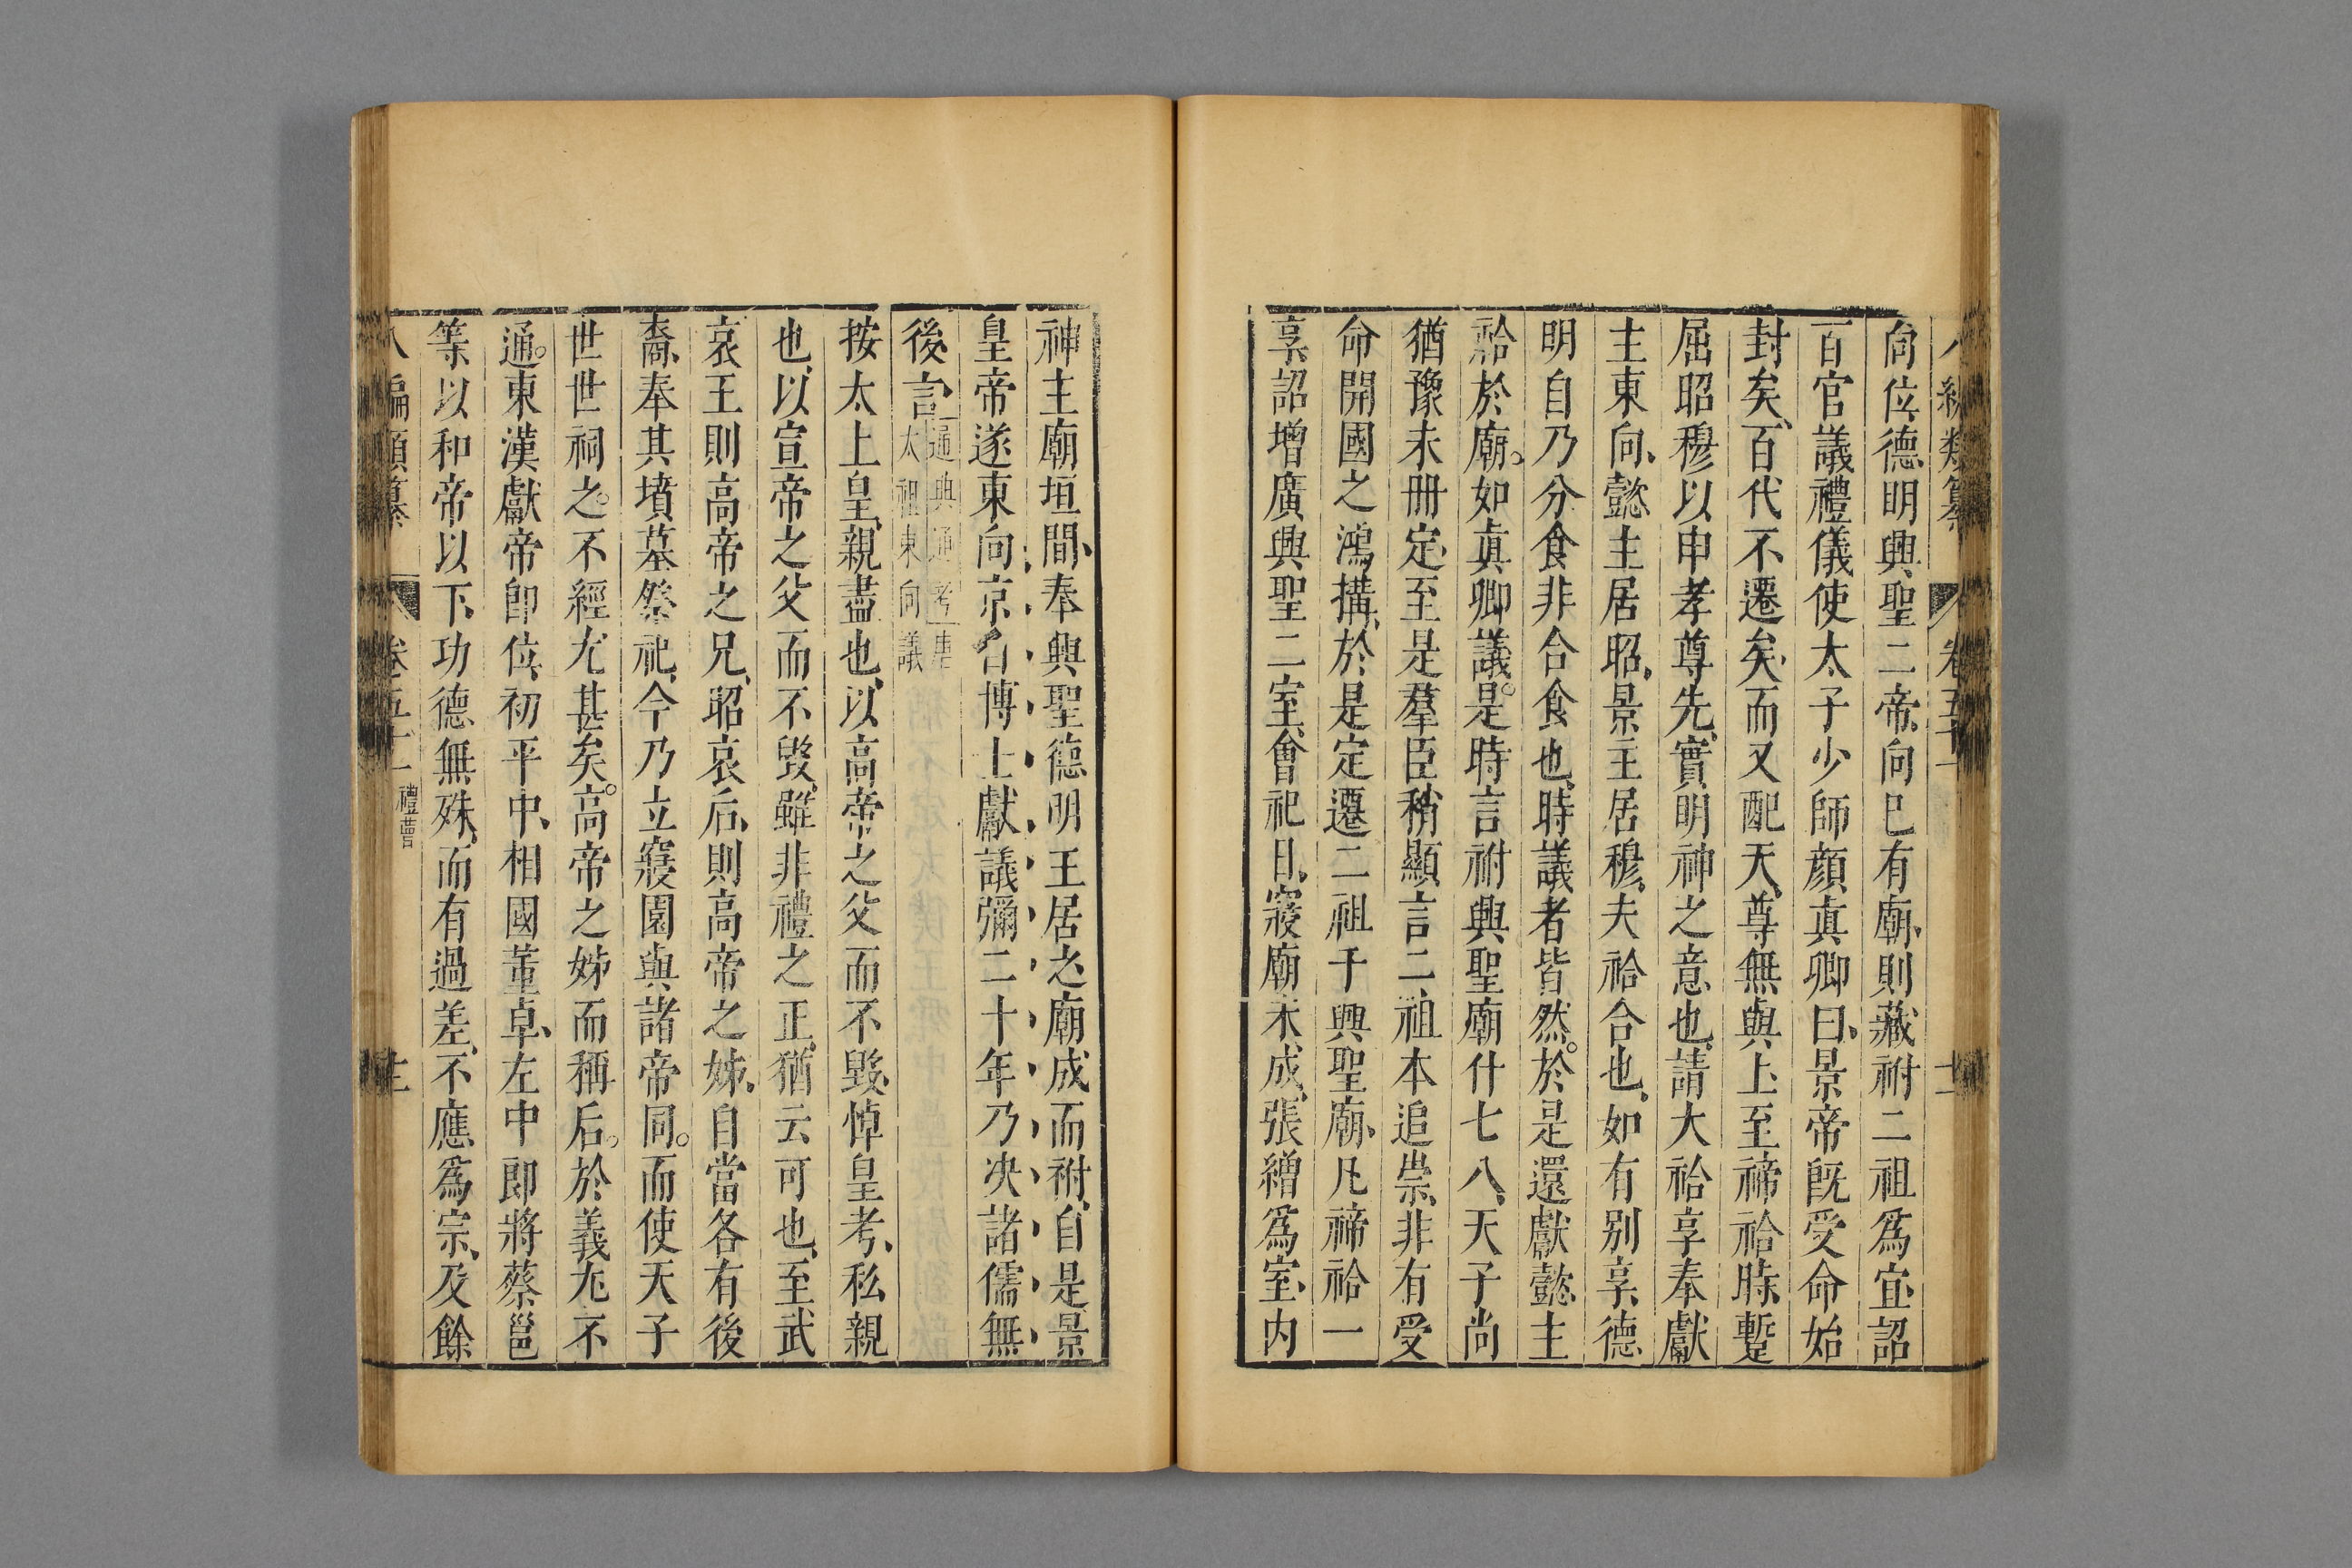 編類纂 卷五十一 十二
向位德明興聖二帝向已有廟則藏祔二祖爲宜詔
百官議禮儀使太子少師顏眞卿曰景帝旣受命始
封矣百代不遷矣而又配天尊無與上至禘祫時暫
屈昭穆以申孝尊先實明神之意也請大祫享奉獻
主東向懿主居昭景主居穆夫祫合也如有别享德
明自乃分食非合食也時議者皆然於是還獻懿主
祫於廟如眞卿議是時言祔興聖廟什七八天子尚
猶豫未冊定至是羣臣稍顯言二祖本追崇非有受
命開國之鴻搆於是定遷二祖于興聖廟凡禘祫一
享詔增廣興聖二室會祀日寢廟未成張繒爲室内
神主廟垣間奉興聖德明王居之廟成而祔自是景
皇帝遂東向京自博士獻議彌二十年乃決諸儒無
後言
通典通考唐
太祖東向議
按太上皇親盡也以高帝之父而不毀悼皇考私親
也以宣帝之父而不毀雖非禮之正猶云可也至武
哀王則高帝之兄昭哀后則高帝之姊自當各有後
裔奉其墳墓祭祀今乃立寢園與諸帝同而使天子
世世祠之不經尤甚矣高帝之姊而稱后於義尤不
通東漢獻帝卽位初平中相國董卓左中郎將蔡邕
等以和帝以下功德無殊而有過差不應爲宗及餘
八編類纂 卷五十一 禮曹 十三